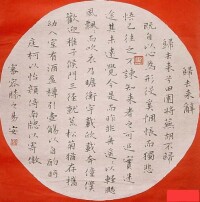 歸去來辭
歸去來兮田園將蕪胡不歸
既自以心為形役奚惆悵而獨悲
悟已往之不諫知來者之可追實迷
途其未遠覺今是而昨非舟遙遙以輕颺
風飄飄而吹衣乃瞻衡宇載欣載奔僮僕
歡迎稚子候門三徑就荒松菊猶存攜
幼入室有酒盈樽引壺觴以自酌眄
庭柯以怡顏倚南窗以寄傲
審容膝之易安